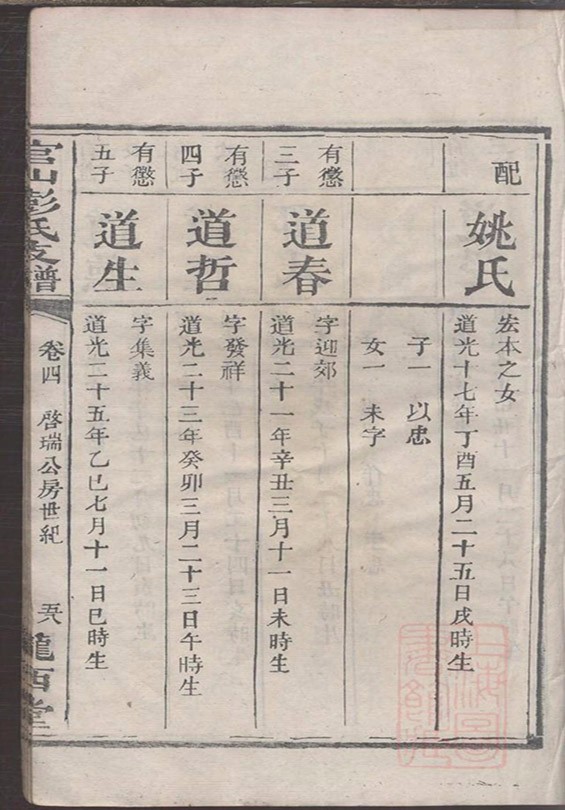 配
姚氏
宏本之女
道光十七年丁酉五月二十五日戌時生
子一 以忠
女一 未字
有懲
三子
道春
字迎郊
道光二十一年辛丑三月十一日未時生
有懲
四子
道哲
字發祥
道光二十三年癸卯三月二十三日午時生
有懲
五子
道生
字集義
道光二十五年乙巳七月十一日巳時生
官山彭氏支譜
卷四 啓瑞公房世紀
隴西堂